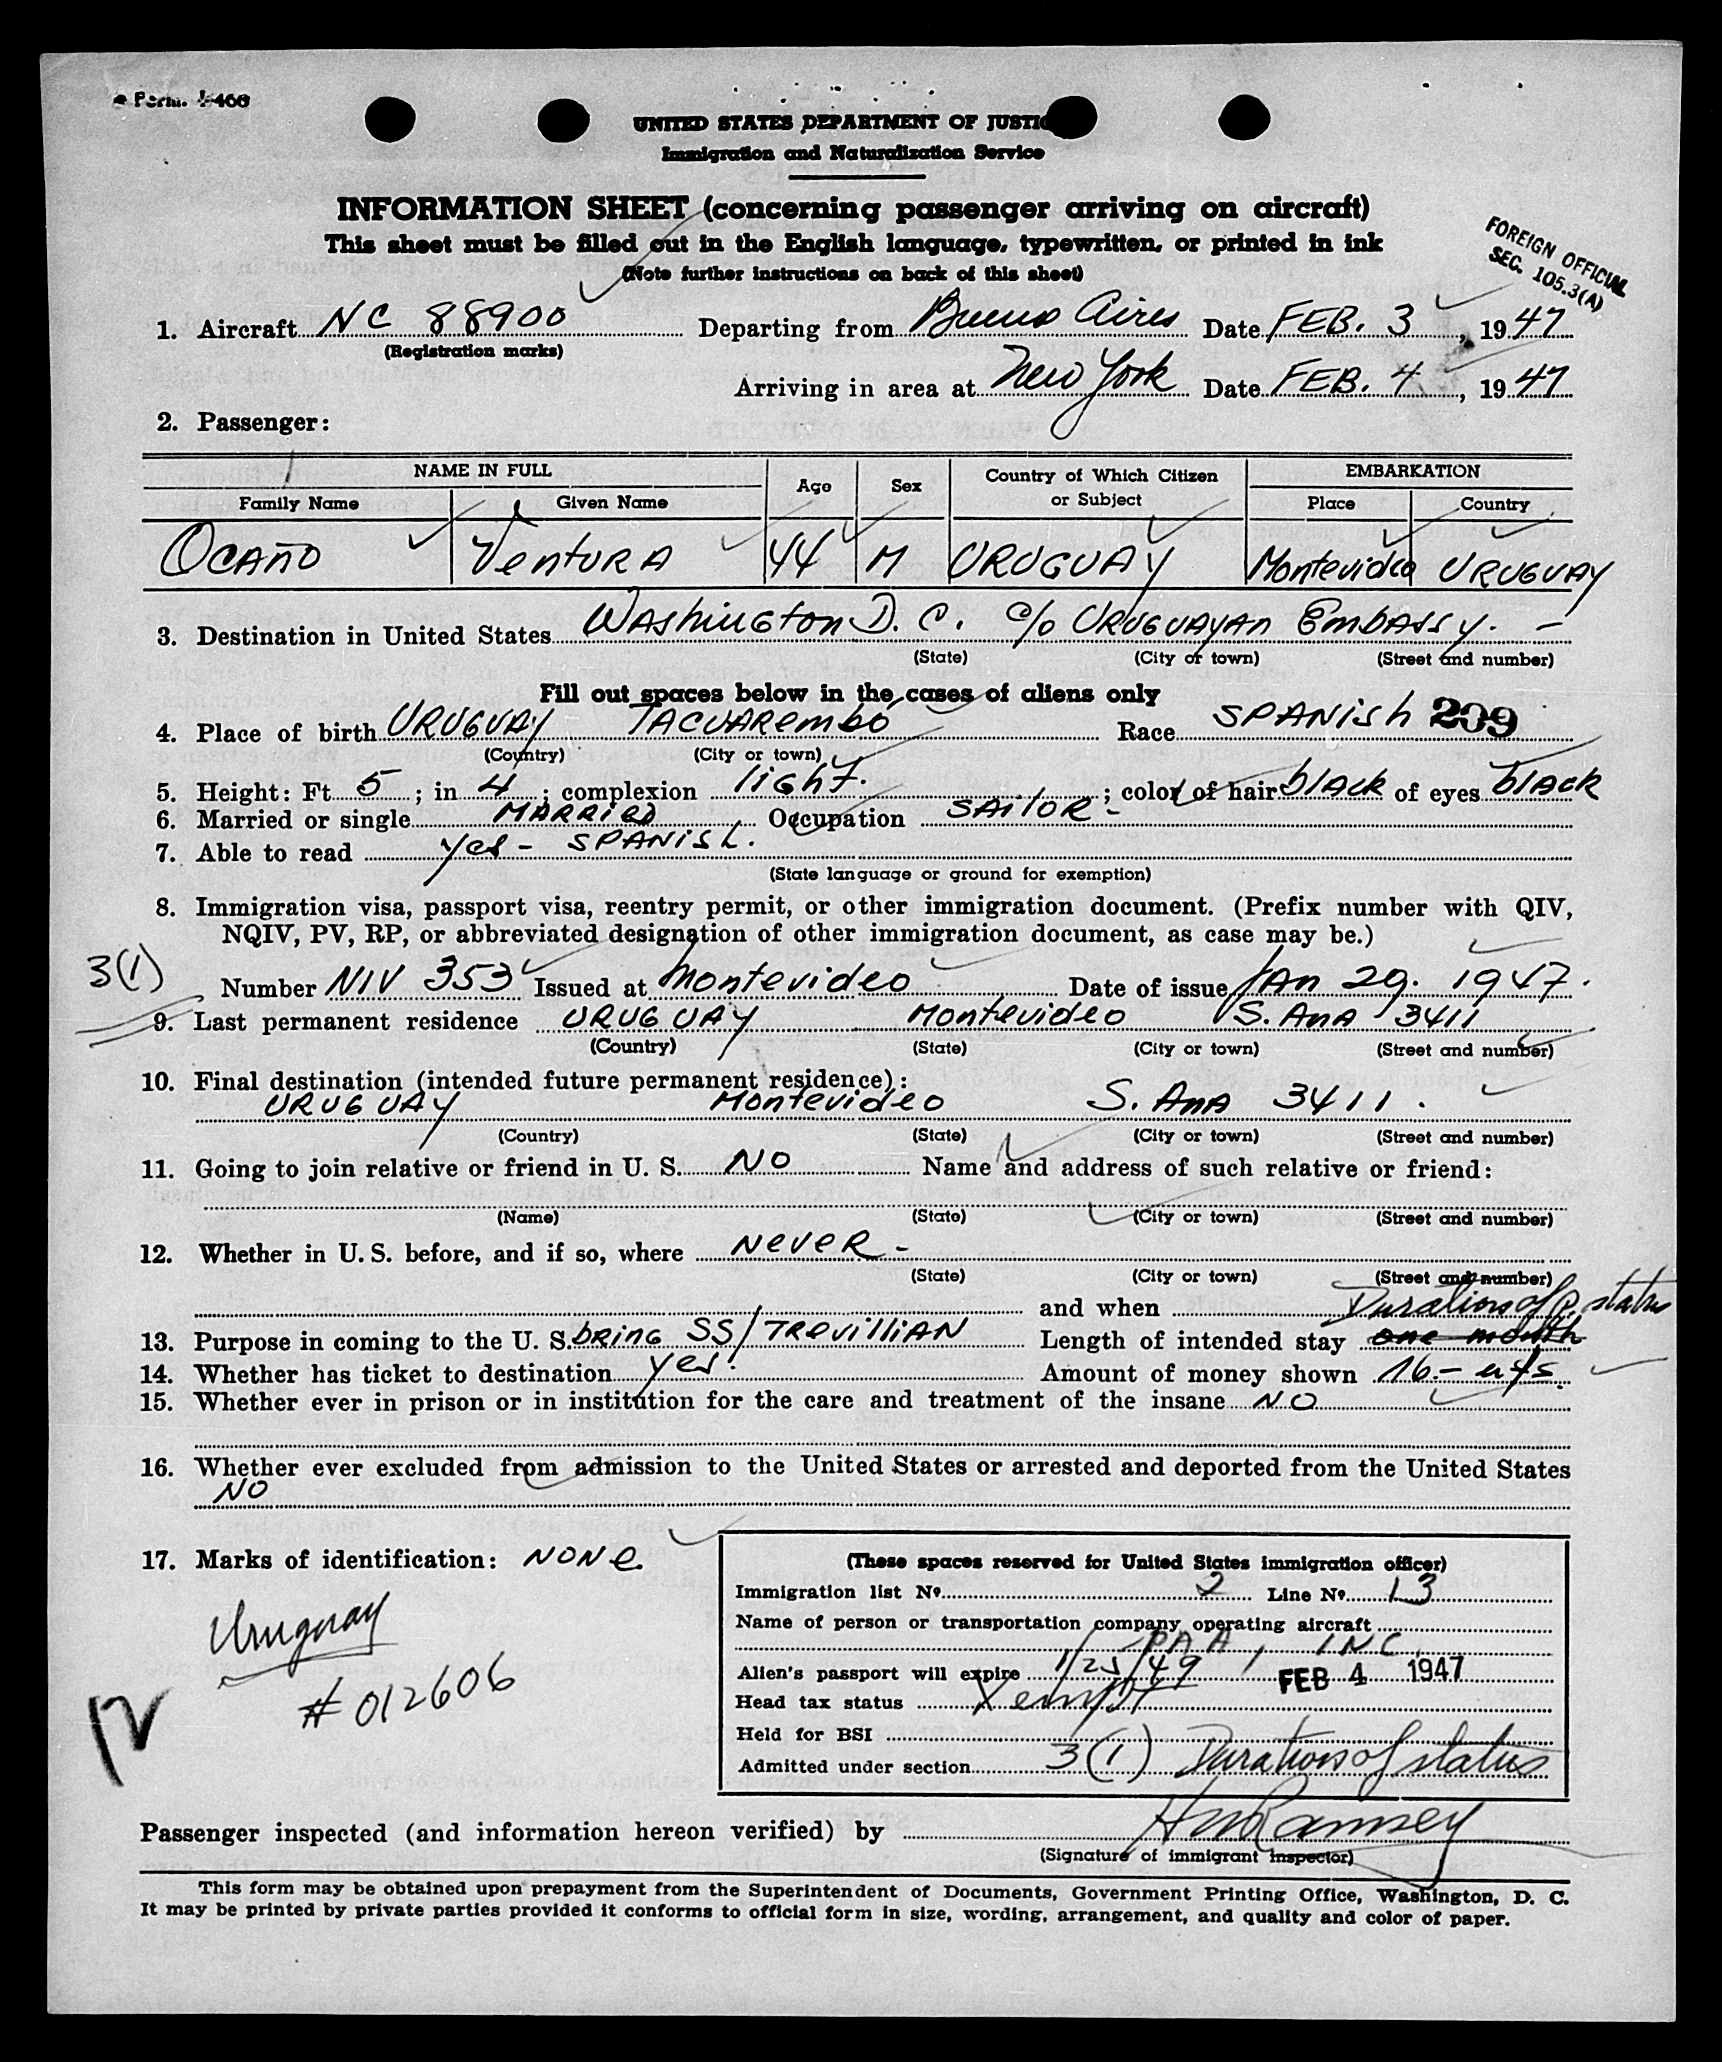 Form I-466
UNITED STATES DEPARTMENT OF JUSTIC
Immigration and Naturalization Service
INFORMATION SHEET (concerning passenger arriving on aircraft)
This sheet must be filled out in the English language, typewritten, or printed in ink
(Note further instructions on back of this sheet)
FOREIGN OFFICIAL
SEC. 105.3(A)
1. Aircraft NC 88900 Departing from Buenos Aires Date FEB. 3, 1947
(Registration marks)
Arriving in area at New York Date FEB. 4, 1947
2. Passenger:
NAME IN FULL Age Sex Country of Which Citizen or Subject EMBARKATION
Family Name Given Name Place Country
OCAÑO VENTURA 44 M URUGUAY Montevideo URUGUAY
3. Destination in United States Washington D. C. c/o URUGUAYAN EMBASSY. -
(State) (City or town) (Street and number)
Fill out spaces below in the cases of aliens only
4. Place of birth URUGUAY TACUAREMBÓ Race SPANISH 209
(Country) (City or town)
5. Height: Ft. 5; in 4; complexion light.; color of hair black of eyes black
6. Married or single MARRIED Occupation SAILOR -
7. Able to read yes - SPANISH.
(State language or ground for exemption)
8. Immigration visa, passport visa, reentry permit, or other immigration document. (Prefix number with QIV,
NQIV, PV, RP, or abbreviated designation of other immigration document, as case may be.)
3(1)
Number NIV 353 Issued at Montevideo Date of issue JAN 29. 1947.
9. Last permanent residence URUGUAY Montevideo S. ANA 3411
(Country) (State) (City or town) (Street and number)
10. Final destination (intended future permanent residence):
URUGUAY Montevideo S. ANA 3411.
(Country) (State) (City or town) (Street and number)
11. Going to join relative or friend in U. S. NO Name and address of such relative or friend:
(Name) (State) (City or town) (Street and number)
12. Whether in U. S. before, and if so, where NEVER -
(State) (City or town) (Street and number)
and when Duration of P. status
13. Purpose in coming to the U. S. BRING SS/TREVILLIAN Length of intended stay one month
14. Whether has ticket to destination yes. Amount of money shown 16.-
15. Whether ever in prison or in institution for the care and treatment of the insane NO
16. Whether ever excluded from admission to the United States or arrested and deported from the United States
NO
17. Marks of identification: NONE.
Uruguay
# 012606
(These spaces reserved for United States immigration officer)
Immigration list Nº 2 Line Nº 13
Name of person or transportation company operating aircraft
PAA, INC.
Alien's passport will expire 1/25/49 FEB 4 1947
Head tax status Xempt
Held for BSI
Admitted under section 3(1) Duration of status
Passenger inspected (and information hereon verified) by HM Ramsey
(Signature of immigrant inspector)
This form may be obtained upon prepayment from the Superintendent of Documents, Government Printing Office, Washington, D. C.
It may be printed by private parties provided it conforms to official form in size, wording, arrangement, and quality and color of paper.